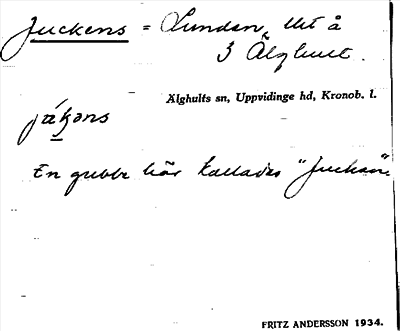 Juckens = Lunden, Ut å
3 Älghult.
Älghults sn, Uppvidinge hd, Kronob. l.
En gubbe här kallades "Juckan".
FRITZ ANDERSSON 1934.